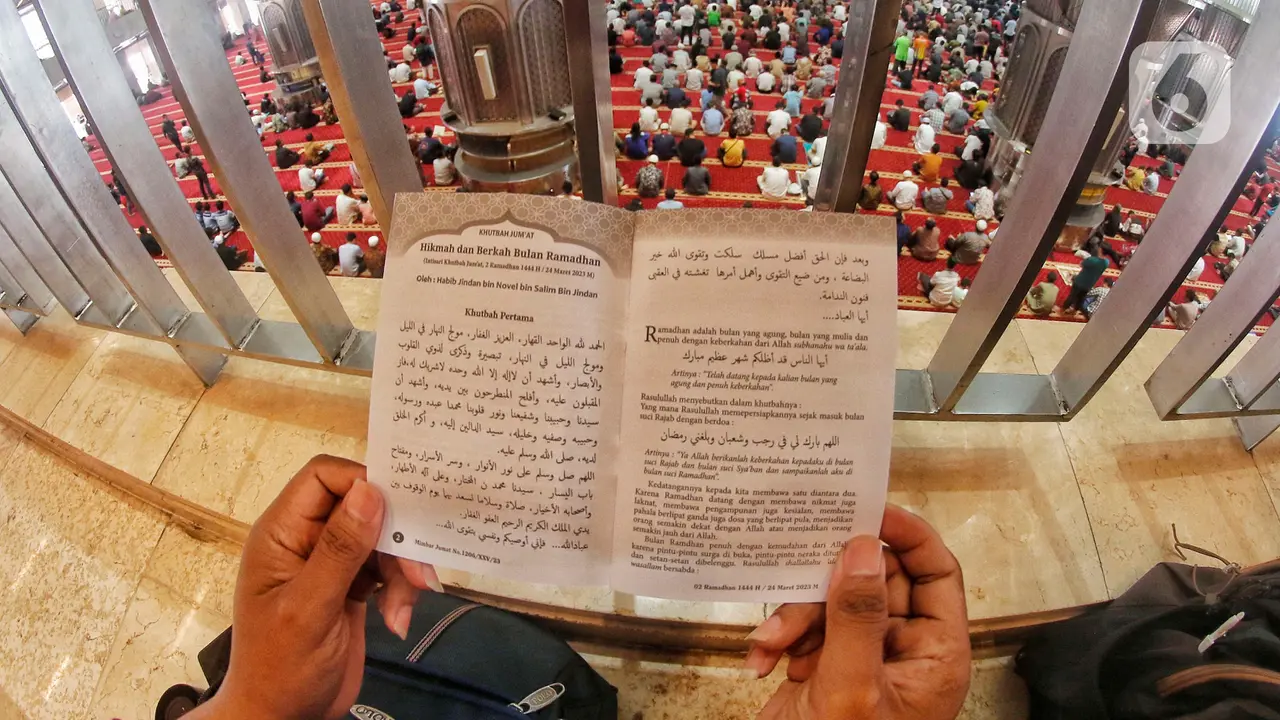 KHUTBAH JUM'AT
Hikmah dan Berkah Bulan Ramadhan
(Intisari Khutbah Jum'at, 2 Ramadhan 1444 H / 24 Maret 2023 M)
Oleh : Habib Jindan bin Novel bin Salim Bin Jindan
Khutbah Pertama
الحمد لله الواحد القهار، العزيز الغفار، مولج النهار في الليل
ومولج الليل في النهار، تبصيرة وذكرى لذوي القلوب
والأبصار، وأشهد أن لاإله إلا الله وحده لاشريك له،فاز
المقبلون عليه، وأفلح المنطرحون بين يديه، وأشهد أن
سيدنا وحبيبنا وشفيعنا ونور قلوبنا محمدا عبده ورسوله،
وحبيبه وصفيه وخليله، سيد الدالين إليه، و أكرم الخلق
لديه، صلى الله وسلم عليه.
اللهم صل وسلم على نور الأنوار ، وسر الأسرار، ومفتاح
باب اليسار ، سيدنا محمد ن المختار، وعلى آله الأطهار،
وأصحابه الأخيار، صلاة وسلاما نسعد بها يوم الوقوف بين
يدي الملك الكريم الرحيم العفو الغفار.
عبادالله... فإني أوصيكم ونفسي بتقوى الله...
2
Mimbar Jumat No.1206/XXV/23
وبعد فإن الحق أفضل مسلك سلكت وتقوى الله خير
البضاعة ، ومن ضيع التقوى وأهمل أمرها تغشته في العقبى
فنون الندامة.
أيها العباد....
Ramadhan adalah bulan yang agung, bulan yang mulia dan
penuh dengan keberkahan dari Allah subhanahu wa ta'ala.
أيها الناس قد أظلكم شهر عظيم مبارك
Artinya : "Telah datang kepada kalian bulan yang
agung dan penuh keberkahan".
Rasulullah menyebutkan dalam khutbahnya :
Yang mana Rasulullah memepersiapkannya sejak masuk bulan
suci Rajab dengan berdoa :
اللهم بارك لي في رجب وشعبان وبلغني رمضان
Artinya : "Ya Allah berikanlah keberkahan kepadaku di bulan
suci Rajab dan bulan suci Sya'ban dan sampaikanlah aku di
bulan suci Ramadhan".
Kedatangannya kepada kita membawa satu diantara dua.
Karena Ramadhan datang dengan membawa nikmat juga
laknat, membawa pengampunan juga kesialan, membawa
pahala berlipat ganda juga dosa yang berlipat pula, menjadikan
orang semakin dekat dengan Allah atau menjadikan orang
semakin jauh dari Allah.
Bulan Ramdhan penuh dengan kemudahan dari Allah
karena pintu-pintu surga di buka, pintu-pintu neraka
dan setan-setan dibelenggu. Rasulullah shallallahu
wasallam bersabda :
02 Ramadhan 1444 H / 24 Maret 2023 M